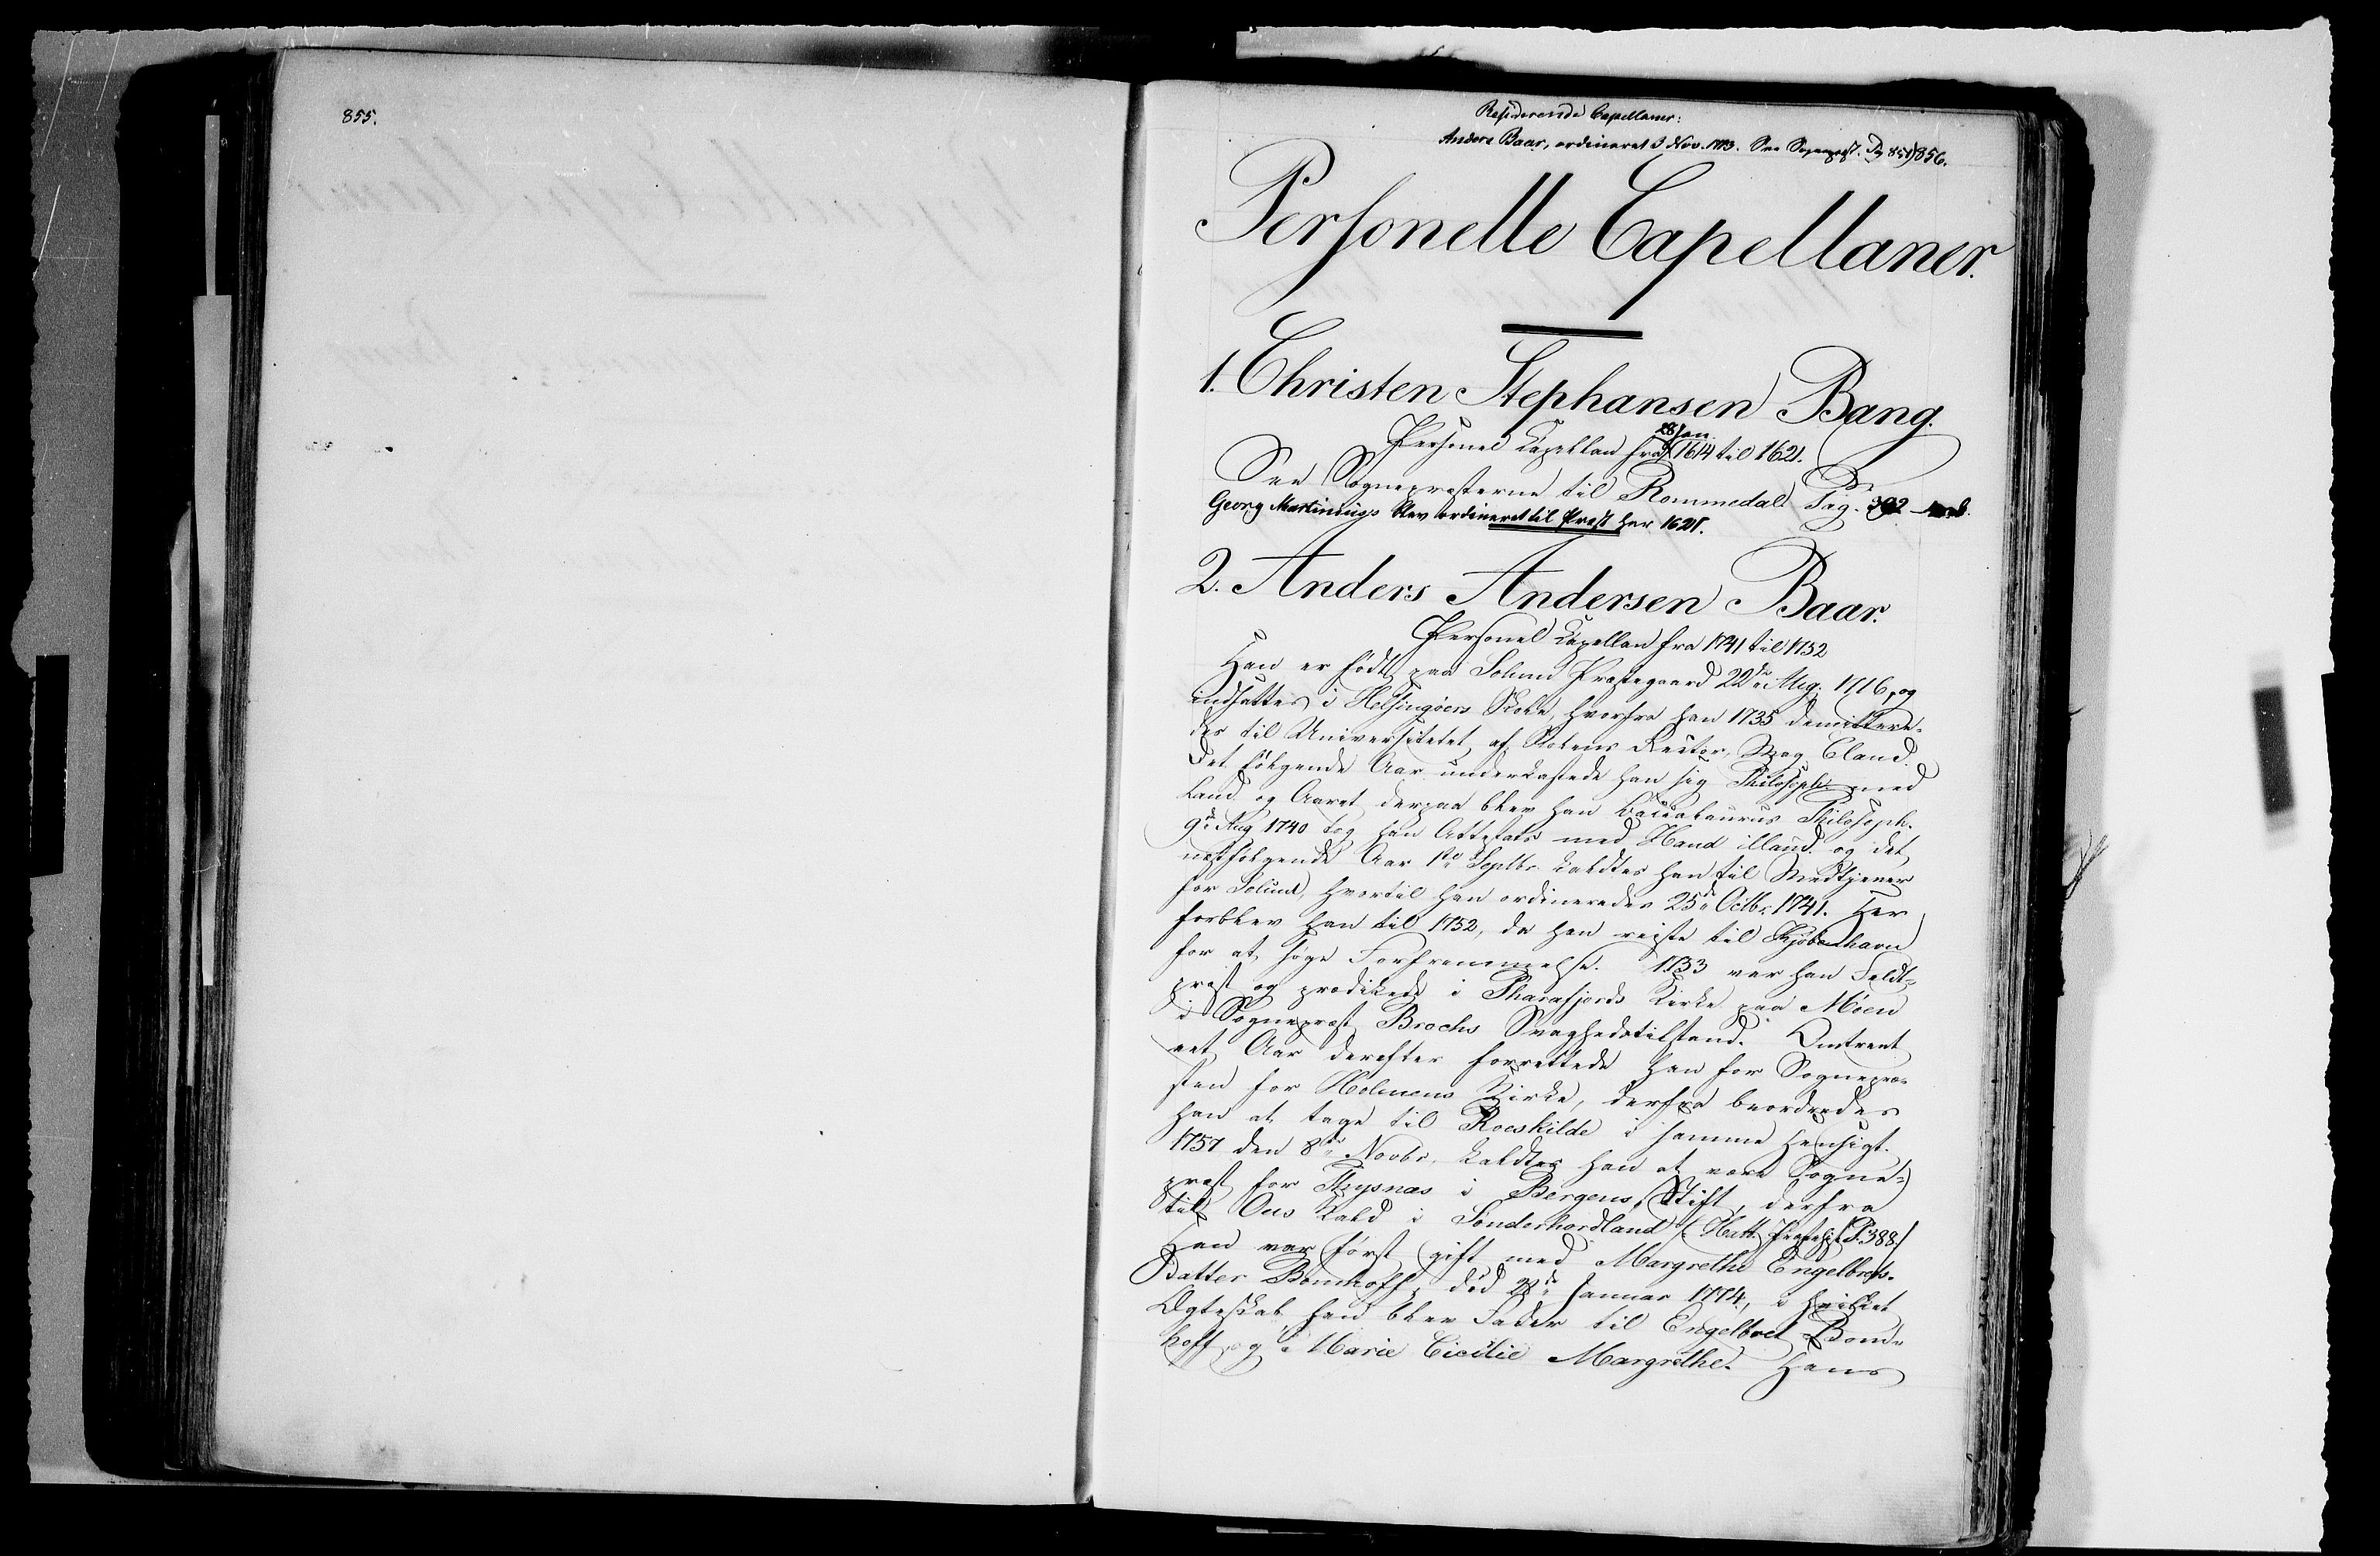 855.
Residerende Capellaner:
Anders Baar, ordineret 3 Nov. 1713. See Sognepræst. Pag 851) 856.
Personelle Capellaner.
1. Christen Stephansen Bang.
28 Jan.
Personel Capellan fra 1614 til 1621.
See Sognepræsterne til Rommedal Pag. 392
Georg Martinius blev ordineret til Præst her 1621.
2. Anders Andersen Baar.
Personel Capellan fra 1741 til 1752
Han er født paa Solund Præstegaard 22de Aug. 1716, og
indsattes i Helsingøers Skole, hvorfra han 1735 demittere-
des til Universitetet af Skolens Rector, Mag. Eland.
Det følgende Aar underkastede han sig Philosoph. med
Laud. og Aaret derpaa blev han Baccalaureus Philosoph.
9de Aug 1740 tog han Attestats med Haud illaud. og det
næstfølgende Aar Septbr. kaldtes han til Medtjener
for Solund, hvortil han ordineredes 25de Octbr. 1741. Her
forblev han til 1752, da han reiste til Kjøbenhavn
for at søge Forfremmelse. 1753 var han Feldt-
præst og prædikede i Kirke paa Møen
i Sognepræst Brochs Svaghedstilstand. Omtrent
eet Aar derefter forrettede han for Sognepræ-
sten for Holmens Kirke, derfra beordredes
han at tage til Roeskilde i samme Hensigt.
1757 den 8de Novbr. kaldtes han at være Sogne-
præst for Thysnæs i Bergens Stift, derfra
til Oes Kald i Sønderhordland (Hatt. Præstehist. P. 388.)
Han var først gift med Margrethe Engelbrets-
Datter Bomhoff, død 22de Januar 1774, i hvilket
Ægteskab han blev Fader til Engelbret Bom-
hoff og Marie Cicilie Margrethe. Hans